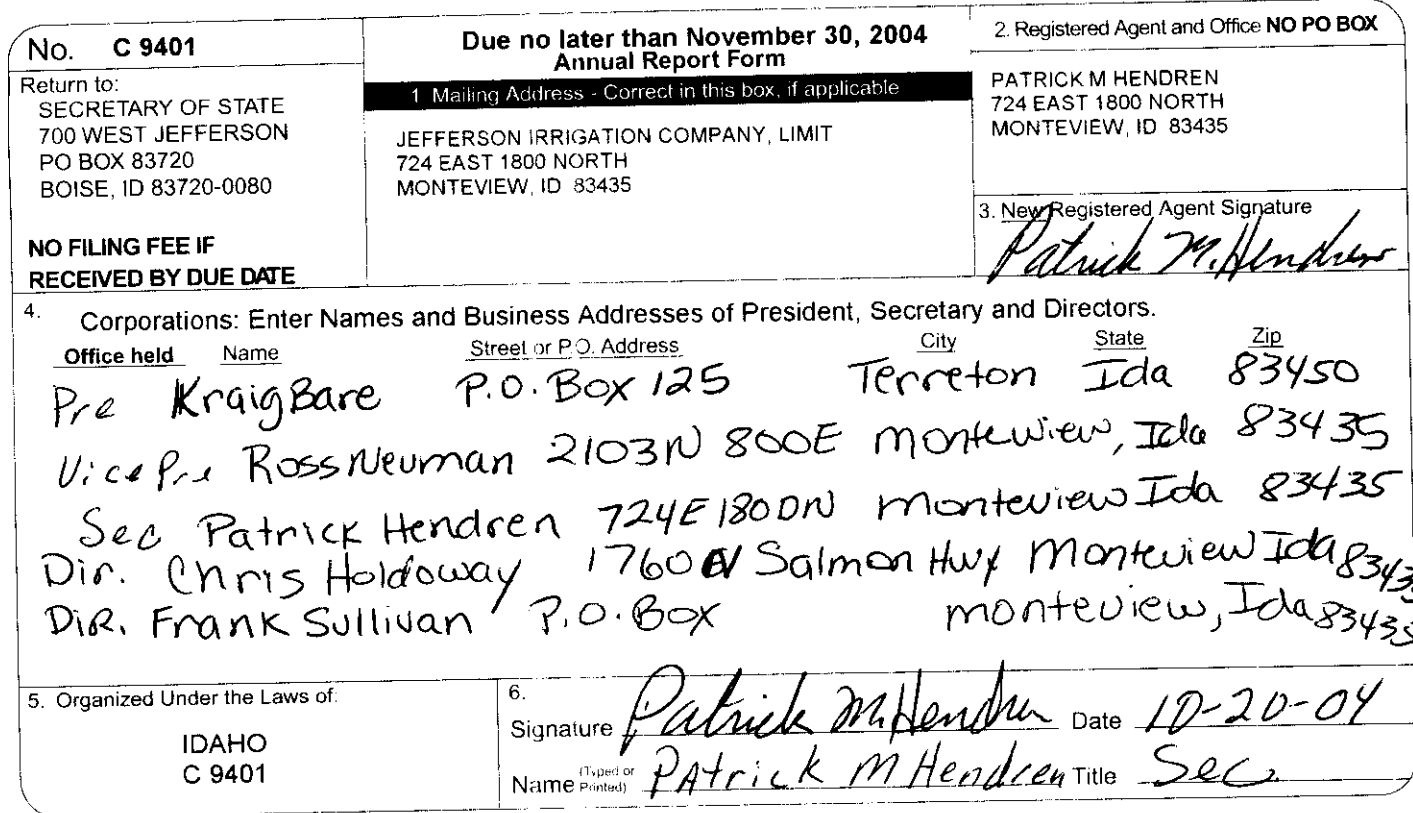 No. C 9401
Return to:
SECRETARY OF STATE
700 WEST JEFFERSON
PO BOX 83720
BOISE, ID 83720-0080
NO FILING FEE IF
RECEIVED BY DUE DATE
Due no later than November 30, 2004
Annual Report Form
1 Mailing Address - Correct in this box, if applicable
JEFFERSON IRRIGATION COMPANY, LIMIT
724 EAST 1800 NORTH
MONTEVIEW, ID 83435
2. Registered Agent and Office NO PO BOX
PATRICK M HENDREN
724 EAST 1800 NORTH
MONTEVIEW, ID 83435
3. New Registered Agent Signature
Patrick M. Hendren
4. Corporations: Enter Names and Business Addresses of President, Secretary and Directors.
Office held Name Street or P.O. Address City State Zip
Pre Kraig Bare P.O. Box 125 Terreton Ida 83450
Vice Pre Ross Neuman 2103N 800E Monteview, Ida 83435
Sec Patrick Hendren 724E 1800N Monteview Ida 83435
Dir. Chris Holdoway 1760 N Salmon Hwy Monteview Ida 83435
DiR. Frank Sullivan P.O. Box monteview, Ida 83435
5. Organized Under the Laws of:
IDAHO
C 9401
6.
Signature Patrick M. Hendren Date 10-20-04
Name (Typed or Printed) PAtrick M Hendren Title Sec.